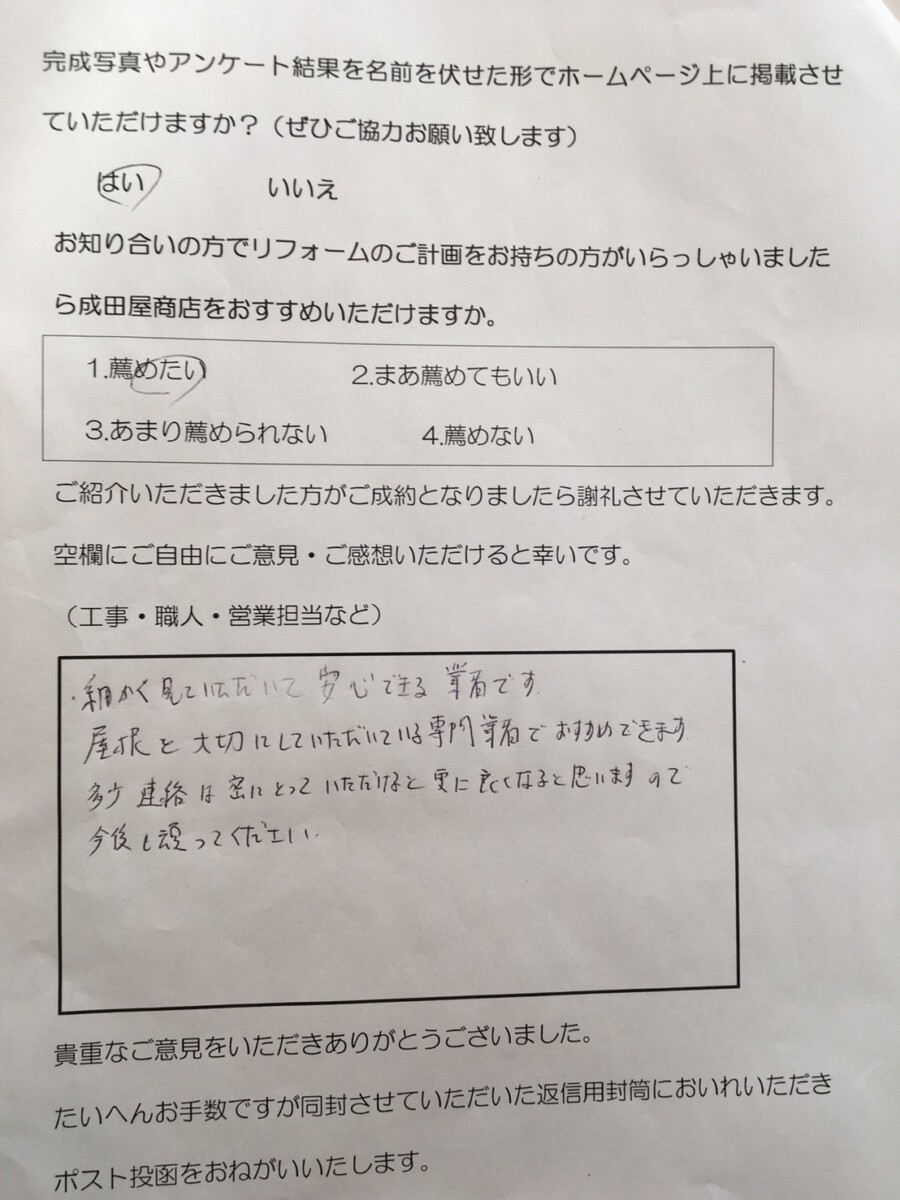 完成写真やアンケート結果を名前を伏せた形でホームページ上に掲載させ
ていただけますか？（ぜひご協力お願い致します）
はい いいえ
お知り合いの方でリフォームのご計画をお持ちの方がいらっしゃいました
ら成田屋商店をおすすめいただけますか。
1.薦めたい 2.まあ薦めてもいい
3.あまり薦められない 4.薦めない
ご紹介いただきました方がご成約となりましたら謝礼させていただきます。
空欄にご自由にご意見・ご感想いただけると幸いです。
（工事・職人・営業担当など）
・細かく見ていただいて安心できる業者です。
屋根を大切にしていただいている専門業者でおすすめできます。
多少連絡は密にとっていただけると更に良くなると思いますので
今後も頑ってください。
貴重なご意見をいただきありがとうございました。
たいへんお手数ですが同封させていただいた返信用封筒においれいただき
ポスト投函をおねがいいたします。